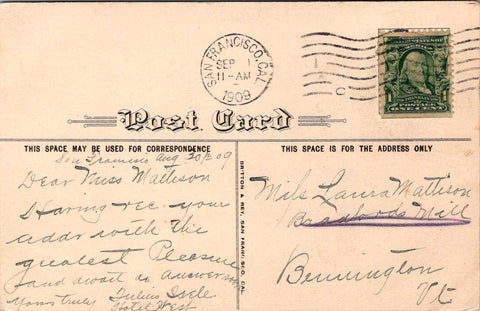 SAN FRANCISCO, CAL.
SEP 1
11-AM
1909
POSTAGE
ONE CENT
Post Card
THIS SPACE MAY BE USED FOR CORRESPONDENCE
THIS SPACE IS FOR THE ADDRESS ONLY
San Francisco Aug 30/09
Dear Miss Mattison
Having rec. your
addr with the
greatest Pleasure
and await an answer
yours truly Julius Isele
Hotel West
BRITTON & REY, SAN FRANCISCO, CAL.
Miss Laura Mattison
Bradfords Mill
Bennington
Vt